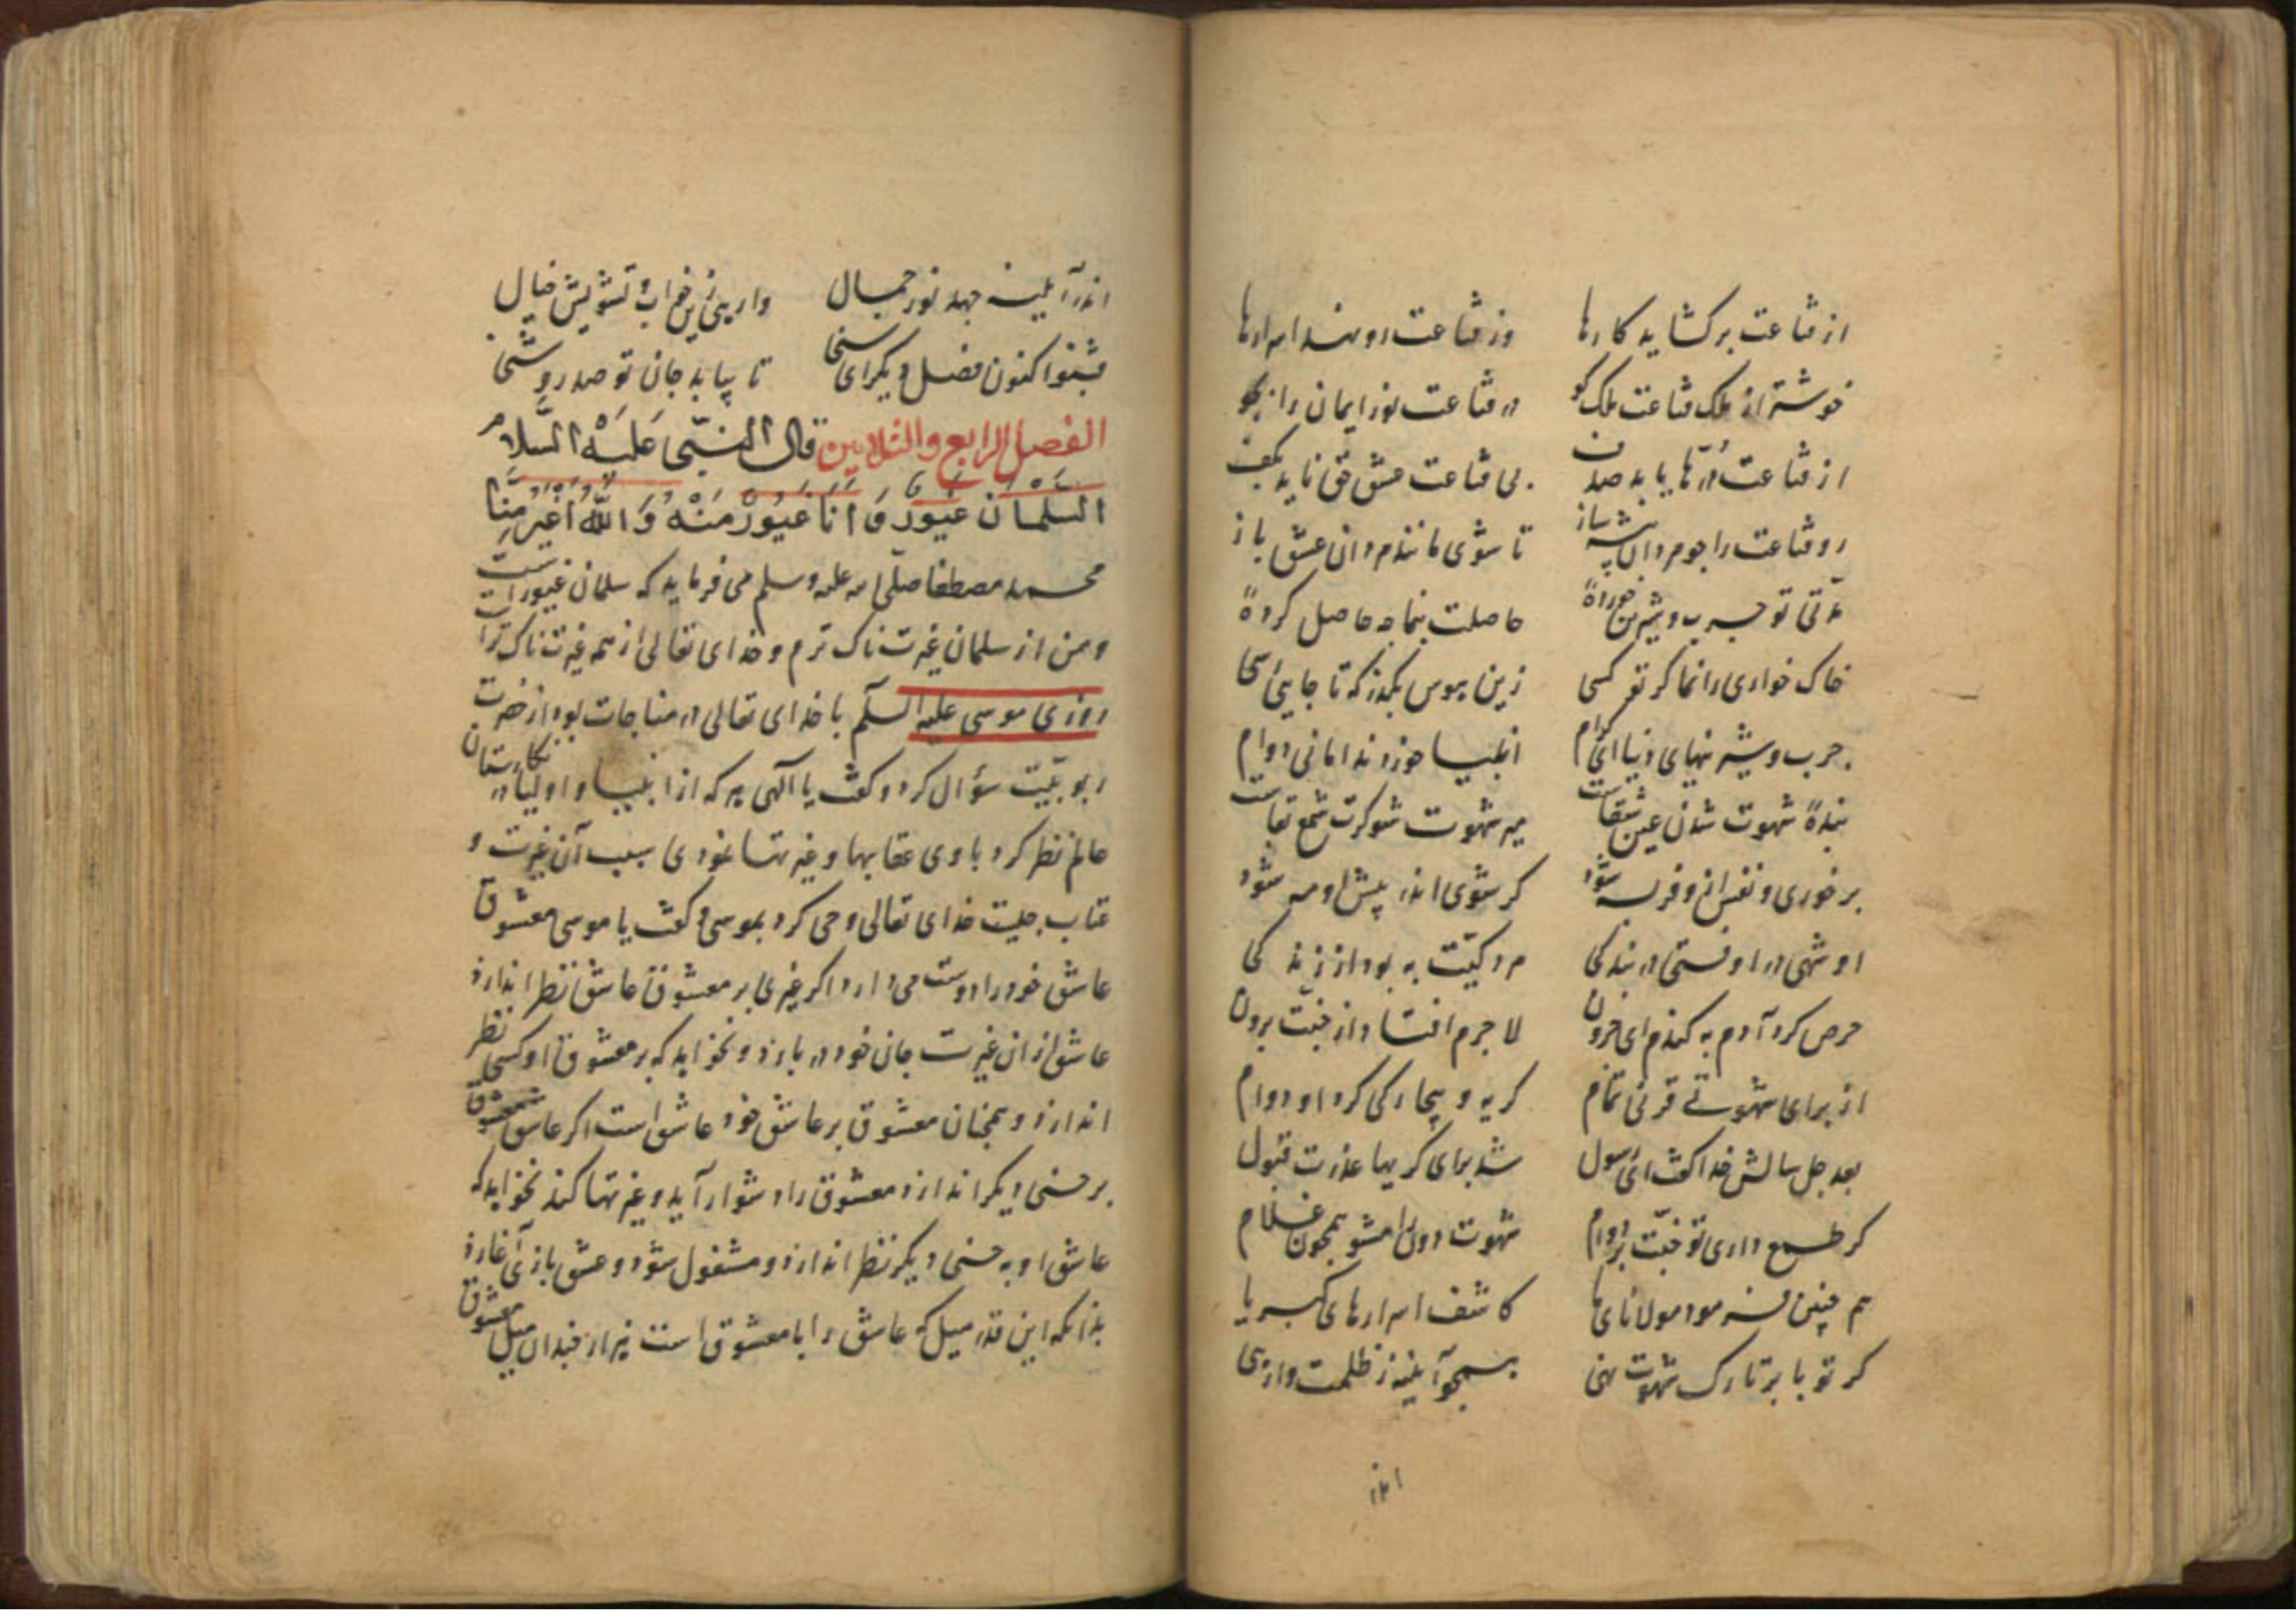 از قناعت برکشاید کارها وز قناعت رو نهد اسرارها
خوشتر از ملک قناعت ملک کو در قناعت نور ایمان را
از قناعت در تا یابد صدف بی قناعت عشق حق ناید بکف
رو قناعت را جو مردان پیشه ساز تا شوی مانند مردان عشق باز
تو چرب و شیرین خوردهٔ حاصلت بنما چه حاصل کردهٔ
خاک خواری را نما کر تو کسی زین هوس بکذر که تا جایی رسی
چرب و شیرینهای دنیا ای کرام انبیا خوردند
بندهٔ شهوت شدن عین شقاست میر شهوت شو کرت شمع تقاست
بر خوری و نفس از و فربه شود
او شهی در او فتی در بندکی مردکیت به بود از زندکی
حرص کرد آدم به کندم ای حرون لا جرم افتاد از جنت برون
از برای شهوتی قرنی تمام کریه و بیچارکی کرد او دوام
بعد چل سالش خدا کفت ای رسول شد برای کریها عذرت قبول
کر طمع داری تو جنت بر دوام شهوت دون را مشو همچون غلام
هم چنین فرمود مولانای ما کاشف اسرارهای کبریا
کر تو پا بر تارک شهوت نهی همچو آینه ز ظلمت وارهی
اندر
اندر آیینه جهد نور جمال وارهی زین خواب و تشویش خیال
بشنو اکنون فصل دیکر ای سنی تا بیابد جان تو صد روشنی
الفصل الرابع والثلاثین قال النبی علیه السلام
السلمان غیور و انا غیور منه و الله اغیر منا
محمد مصطفا صلی الله علیه وسلم می فرماید که سلمان غیورست
و من از سلمان غیرت ناک ترم و خدای تعالی از همه غیرت ناک تراست
روزی موسی علیه السلم با خدای تعالی در مناجات بود از حضرت
ربوبیت سؤال کرد و کفت یا الهی هر که از انبیا و اولیا در نکارستان
عالم نظر کرد با وی عتابها و غیرتها نمودی سبب آن غیرت و
عتاب چیست خدای تعالی وحی کرد بموسی و کفت یا موسی معشوق
عاشق خود را دوست می دارد اکر غیری بر معشوق عاشق نظر اندازد
عاشق از ان غیرت جان خود در بازد و نخواهد که بر معشوق او کسی نظر
اندازد و همچنان معشوق بر عاشق خود عاشق است اکر عاشق معشوق
بر حسنی دیکر اندازد معشوق را دشوار آید و غیرتها کند نخواهد که
عاشق او به حسنی دیکر نظر اندازد و مشغول شود و عشق بازی آغازد
بدانکه این قدر میل که عاشق را با معشوق است هزار چندان میل معشوق